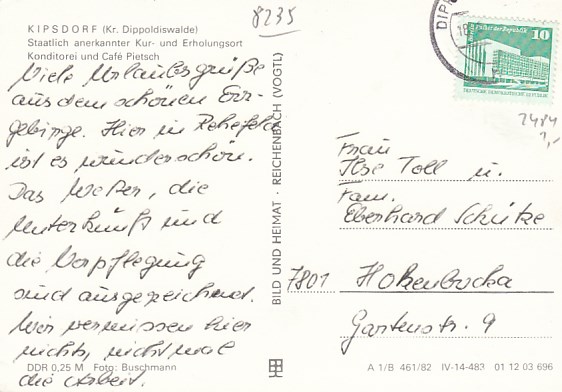 8235
KIPSDORF (Kr. Dippoldiswalde)
Staatlich anerkannter Kur- und Erholungsort
Konditorei und Café Pietsch
Viele Urlaubsgrüße
aus dem schönen Erz-
gebirge. Hier in Rehefeld
ist es wunderschön.
Das Wetter, die
Unterkunft und
die Verpflegung
sind ausgezeichnet.
Wir vermissen hier
nichts, nicht mal
die Arbeit.
DDR 0,25 M Foto: Buschmann
BILD UND HEIMAT · REICHENBACH (VOGTL)
10
Palast der Republik
DEUTSCHE DEMOKRATISCHE REPUBLIK
DIPP
2484
1,-
Frau
Ilse Toll u.
Fam.
Eberhard Schütze
7801 Hohenbocka
Gartenstr. 9
A 1/B 461/82 IV-14-483 01 12 03 696